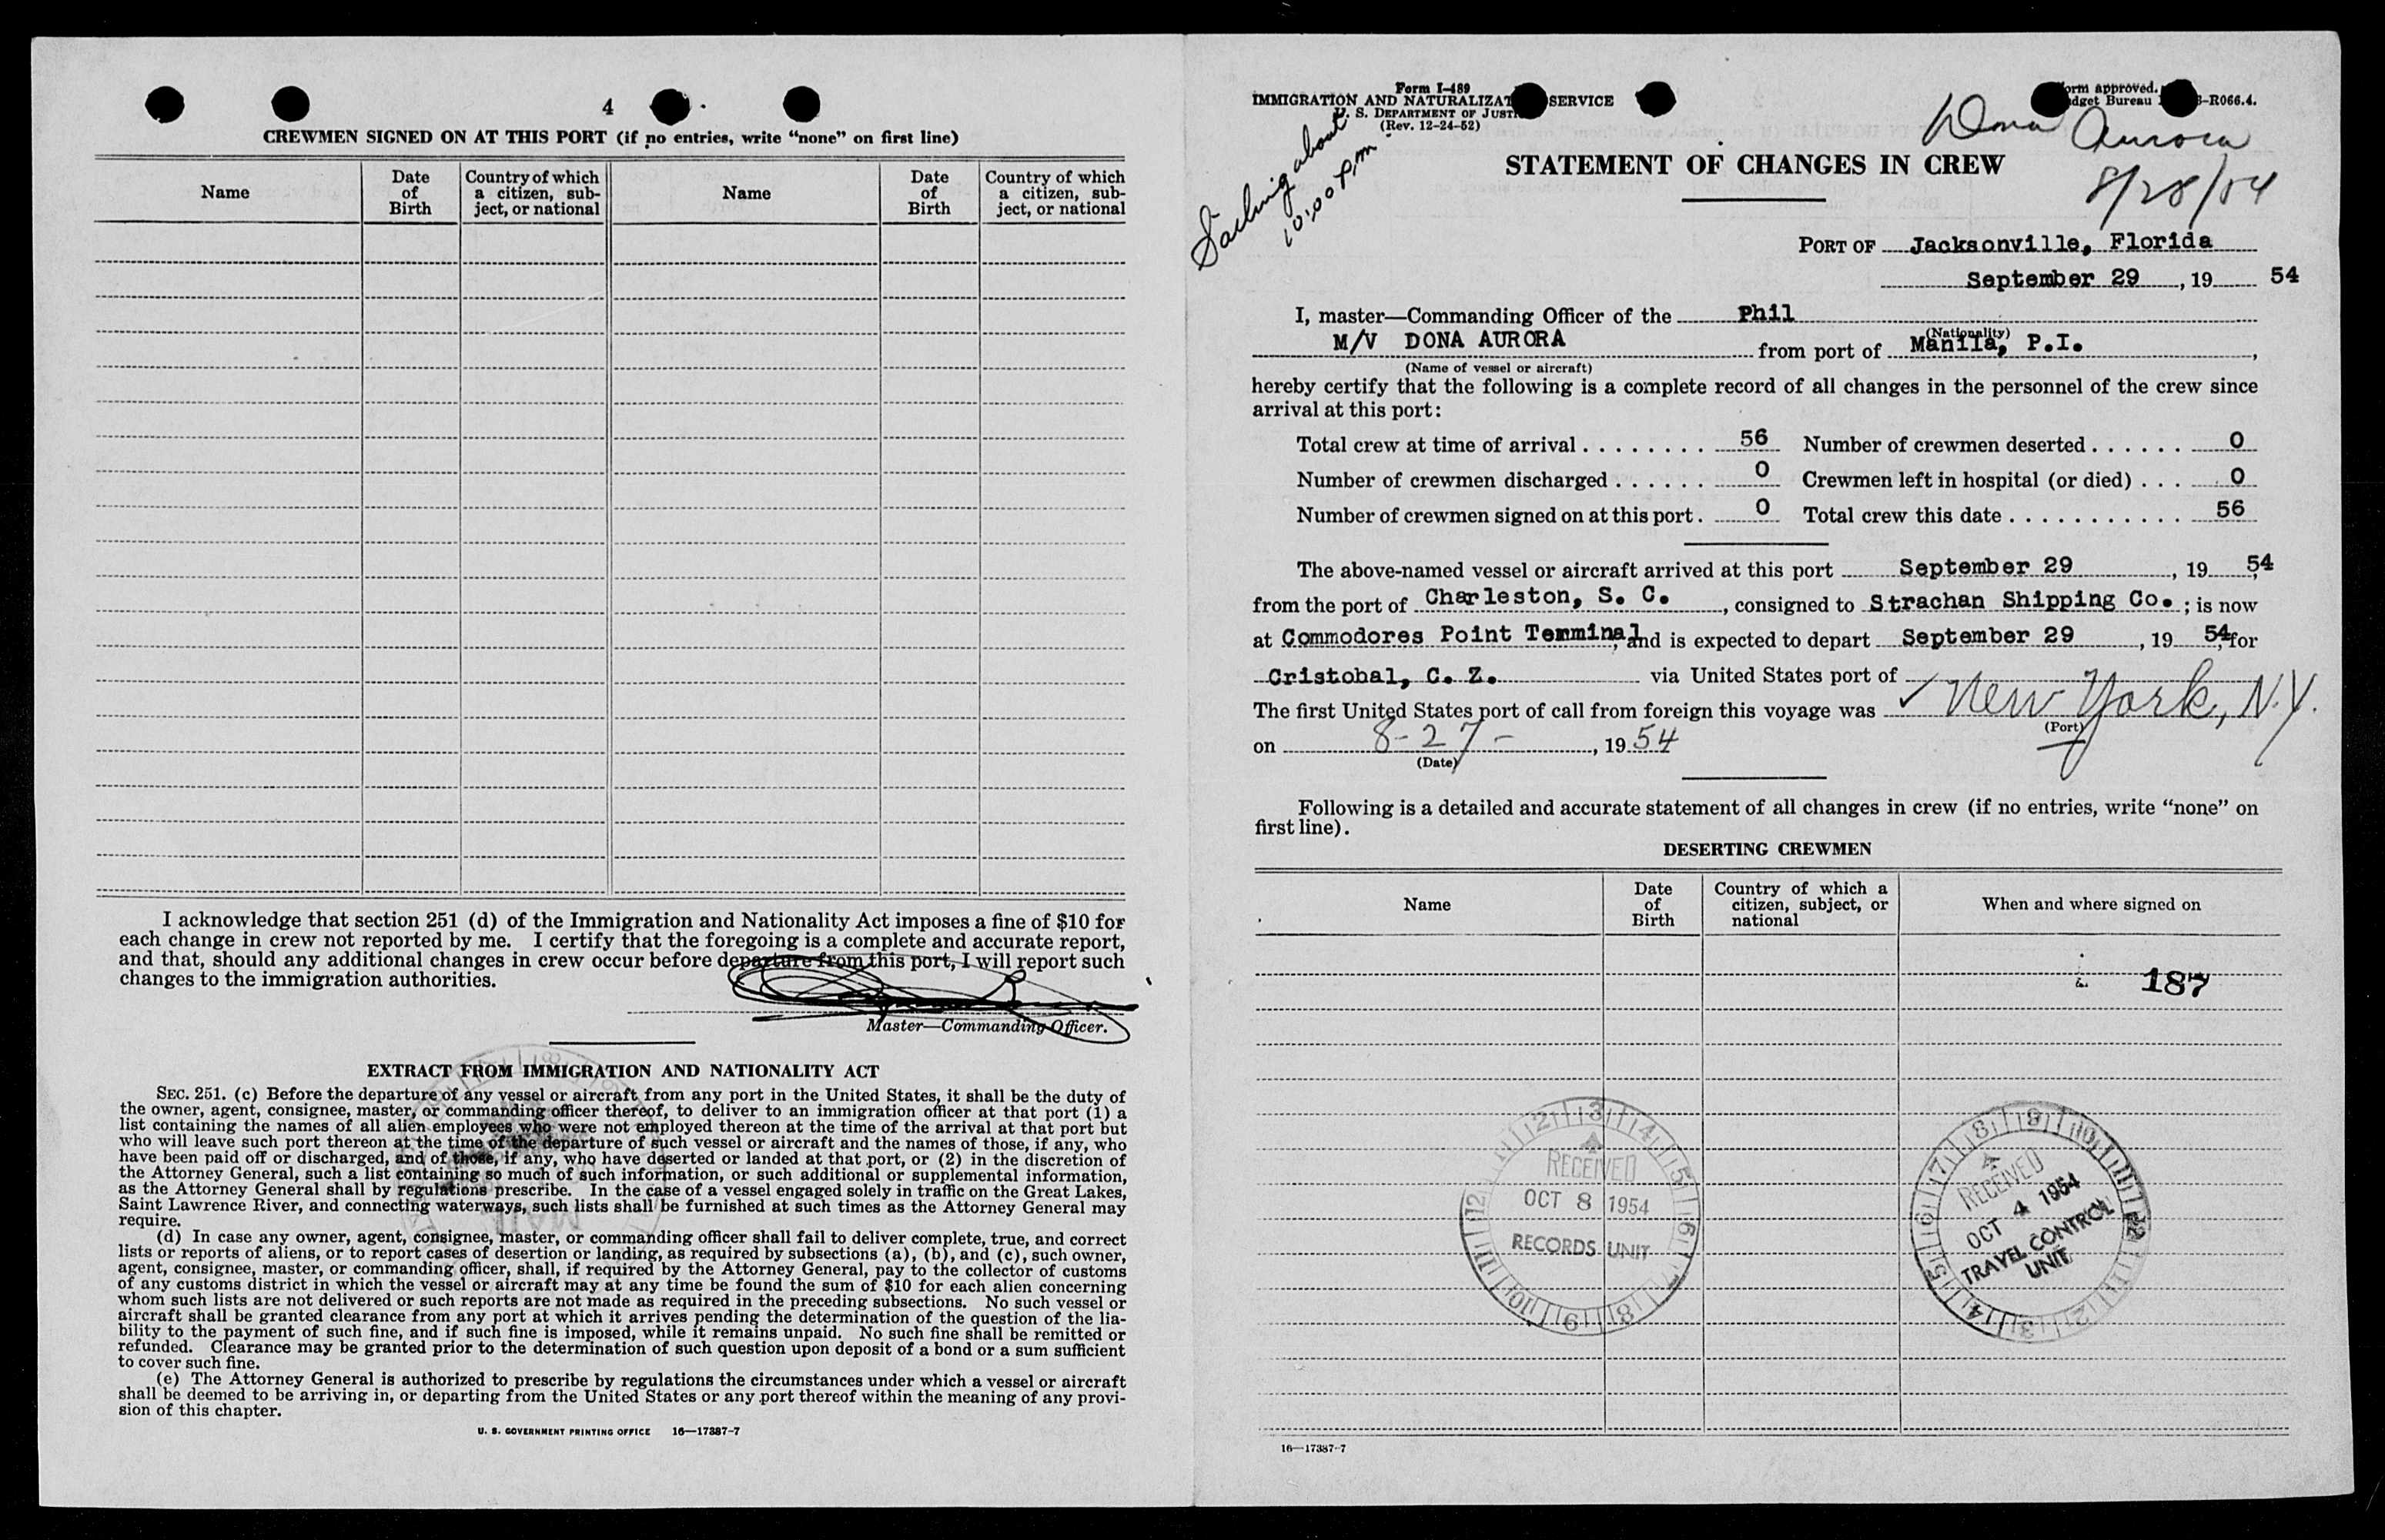 4
CREWMEN SIGNED ON AT THIS PORT (if no entries, write "none" on first line)
Name
Date of Birth
Country of which a citizen, sub-ject, or national
Name
Date of Birth
Country of which a citizen, sub-ject, or national
I acknowledge that section 251 (d) of the Immigration and Nationality Act imposes a fine of $10 for
each change in crew not reported by me. I certify that the foregoing is a complete and accurate report,
and that, should any additional changes in crew occur before departure from this port, I will report such
changes to the immigration authorities.
Master—Commanding Officer.
EXTRACT FROM IMMIGRATION AND NATIONALITY ACT
SEC. 251. (c) Before the departure of any vessel or aircraft from any port in the United States, it shall be the duty of
the owner, agent, consignee, master, or commanding officer thereof, to deliver to an immigration officer at that port (1) a
list containing the names of all alien employees who were not employed thereon at the time of the arrival at that port but
who will leave such port thereon at the time of the departure of such vessel or aircraft and the names of those, if any, who
have been paid off or discharged, and of those, if any, who have deserted or landed at that port, or (2) in the discretion of
the Attorney General, such a list containing so much of such information, or such additional or supplemental information,
as the Attorney General shall by regulations prescribe. In the case of a vessel engaged solely in traffic on the Great Lakes,
Saint Lawrence River, and connecting waterways, such lists shall be furnished at such times as the Attorney General may
require.
(d) In case any owner, agent, consignee, master, or commanding officer shall fail to deliver complete, true, and correct
lists or reports of aliens, or to report cases of desertion or landing, as required by subsections (a), (b), and (c), such owner,
agent, consignee, master, or commanding officer, shall, if required by the Attorney General, pay to the collector of customs
of any customs district in which the vessel or aircraft may at any time be found the sum of $10 for each alien concerning
whom such lists are not delivered or such reports are not made as required in the preceding subsections. No such vessel or
aircraft shall be granted clearance from any port at which it arrives pending the determination of the question of the lia-
bility to the payment of such fine, and if such fine is imposed, while it remains unpaid. No such fine shall be remitted or
refunded. Clearance may be granted prior to the determination of such question upon deposit of a bond or a sum sufficient
to cover such fine.
(e) The Attorney General is authorized to prescribe by regulations the circumstances under which a vessel or aircraft
shall be deemed to be arriving in, or departing from the United States or any port thereof within the meaning of any provi-
sion of this chapter.
U. S. GOVERNMENT PRINTING OFFICE 16—17387-7
Form I-489
IMMIGRATION AND NATURALIZAT SERVICE
U. S. DEPARTMENT OF JUSTI
(Rev. 12-24-52)
orm approved.
dget Bureau -R066.4.
Sailing about
10:00 P.m.
Dona Aurora
8/28/54
STATEMENT OF CHANGES IN CREW
PORT OF Jacksonville, Florida
September 29, 19 54
I, master—Commanding Officer of the Phil
(Nationality)
M/V DONA AURORA from port of Manila, P.I.,
(Name of vessel or aircraft)
hereby certify that the following is a complete record of all changes in the personnel of the crew since
arrival at this port:
Total crew at time of arrival 56 Number of crewmen deserted 0
Number of crewmen discharged 0 Crewmen left in hospital (or died) 0
Number of crewmen signed on at this port. 0 Total crew this date 56
The above-named vessel or aircraft arrived at this port September 29, 19 54,
from the port of Charleston, S. C., consigned to Strachan Shipping Co.; is now
at Commodores Point Temminal, and is expected to depart September 29, 19 54, for
Cristobal, C. Z. via United States port of
The first United States port of call from foreign this voyage was ✓ New York, N.Y.
(Port)
on 8-27-, 19 54
(Date)
Following is a detailed and accurate statement of all changes in crew (if no entries, write "none" on
first line).
DESERTING CREWMEN
Name
Date of Birth
Country of which a citizen, subject, or national
When and where signed on
187
RECEIVED
OCT 8 1954
RECORDS UNIT
RECEIVED
OCT 4 1954
TRAVEL CONTROL
UNIT
16—17387-7